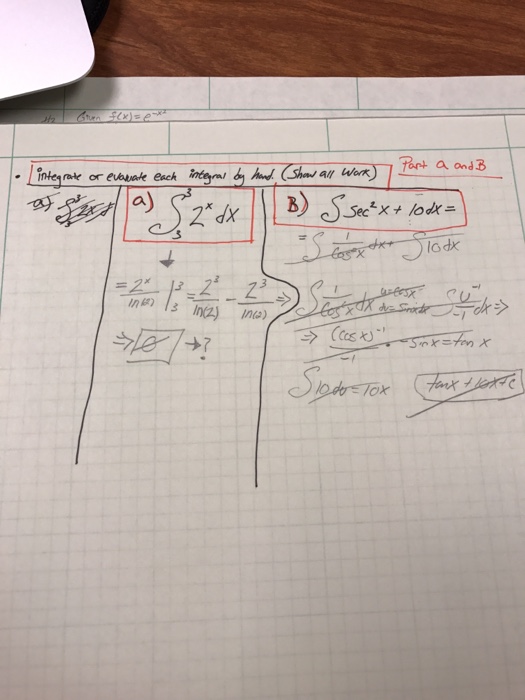 Given f(x) = e^-x²
• integrate or evaluate each integral by hand. (Show all work) Part a and B
a)
a) ∫₃³ 2ˣ dx
= 2ˣ/ln(2) |₃³ = 2³/ln(2) - 2³/ln(2) ⇒
⇒ 0 → ?
B) ∫ sec² x + 10dx =
= ∫ 1/cos²x dx + ∫10dx
∫ 1/cos²x dx u=cosx du=-sinxdx ∫ u⁻¹/-1 dx ⇒
⇒ (cosx)⁻¹/-1 · -sinx = tan x
∫10dx = 10x tanx + 10x + c